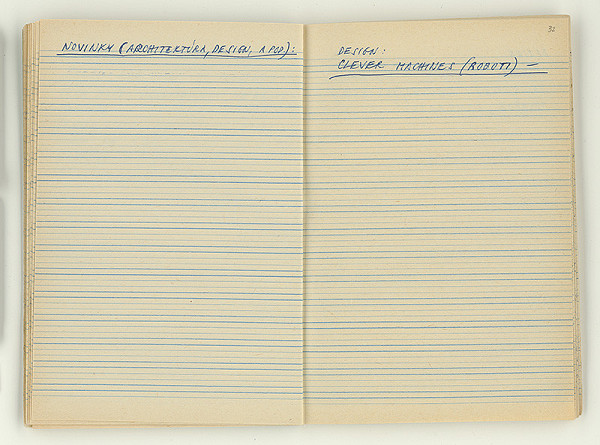 NOVINKY (ARCHITEKTÚRA, DESIGN, A POD):
32
DESIGN:
CLEVER MACHINES (ROBOTI) –